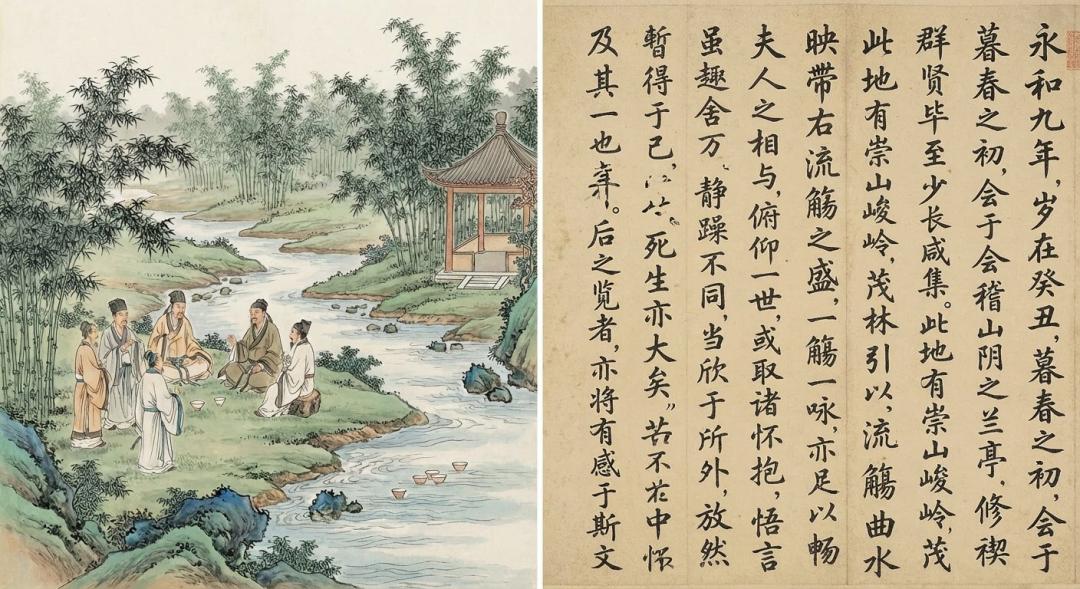 永和九年,岁在癸丑,暮春之初,会于
暮春之初,会于会稽山阴之兰亭、修禊
群贤毕至少长咸集。此地有崇山峻岭,茂
此地有崇山峻岭,茂林引以,流觞曲水
映带右流觞之盛,一觞一咏,亦足以畅
夫人之相与,俯仰一世,或取诸怀抱,悟言
虽趣舍万、静躁不同,当欣于所外,放然
暂得于己,死生亦大矣。苦不 中怀
及其一也 。后之览者,亦将有感于斯文